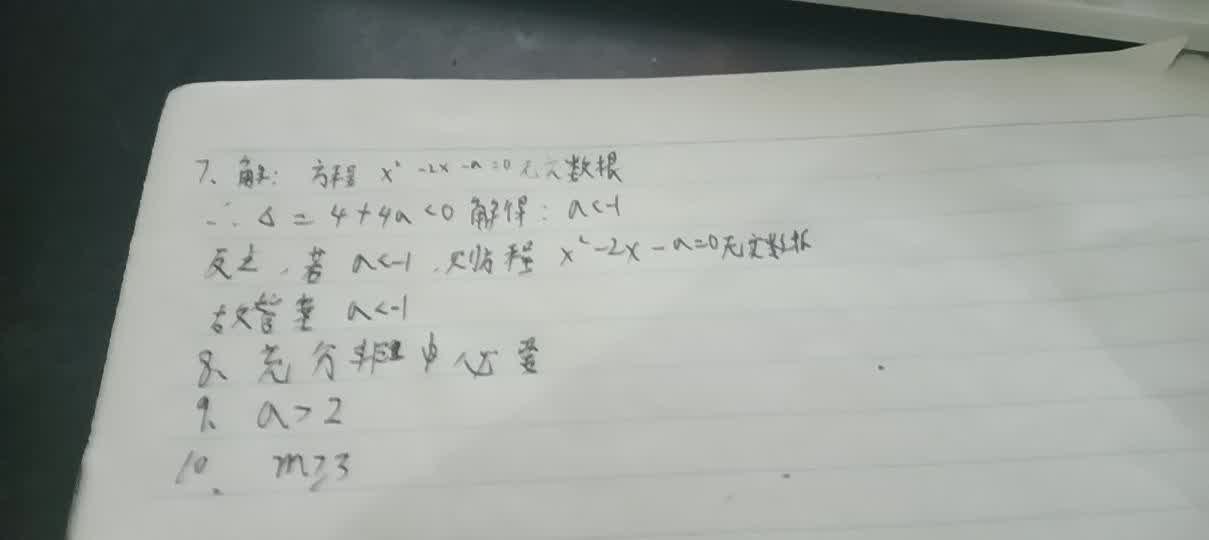 7、解：方程 x²-2x-a=0无实数根
∴ Δ=4+4a<0 解得：a<-1
反之，若 a<-1，则方程 x²-2x-a=0无实数根
故答案 a<-1
8、充分非必要
9、a>2
10、m≥3